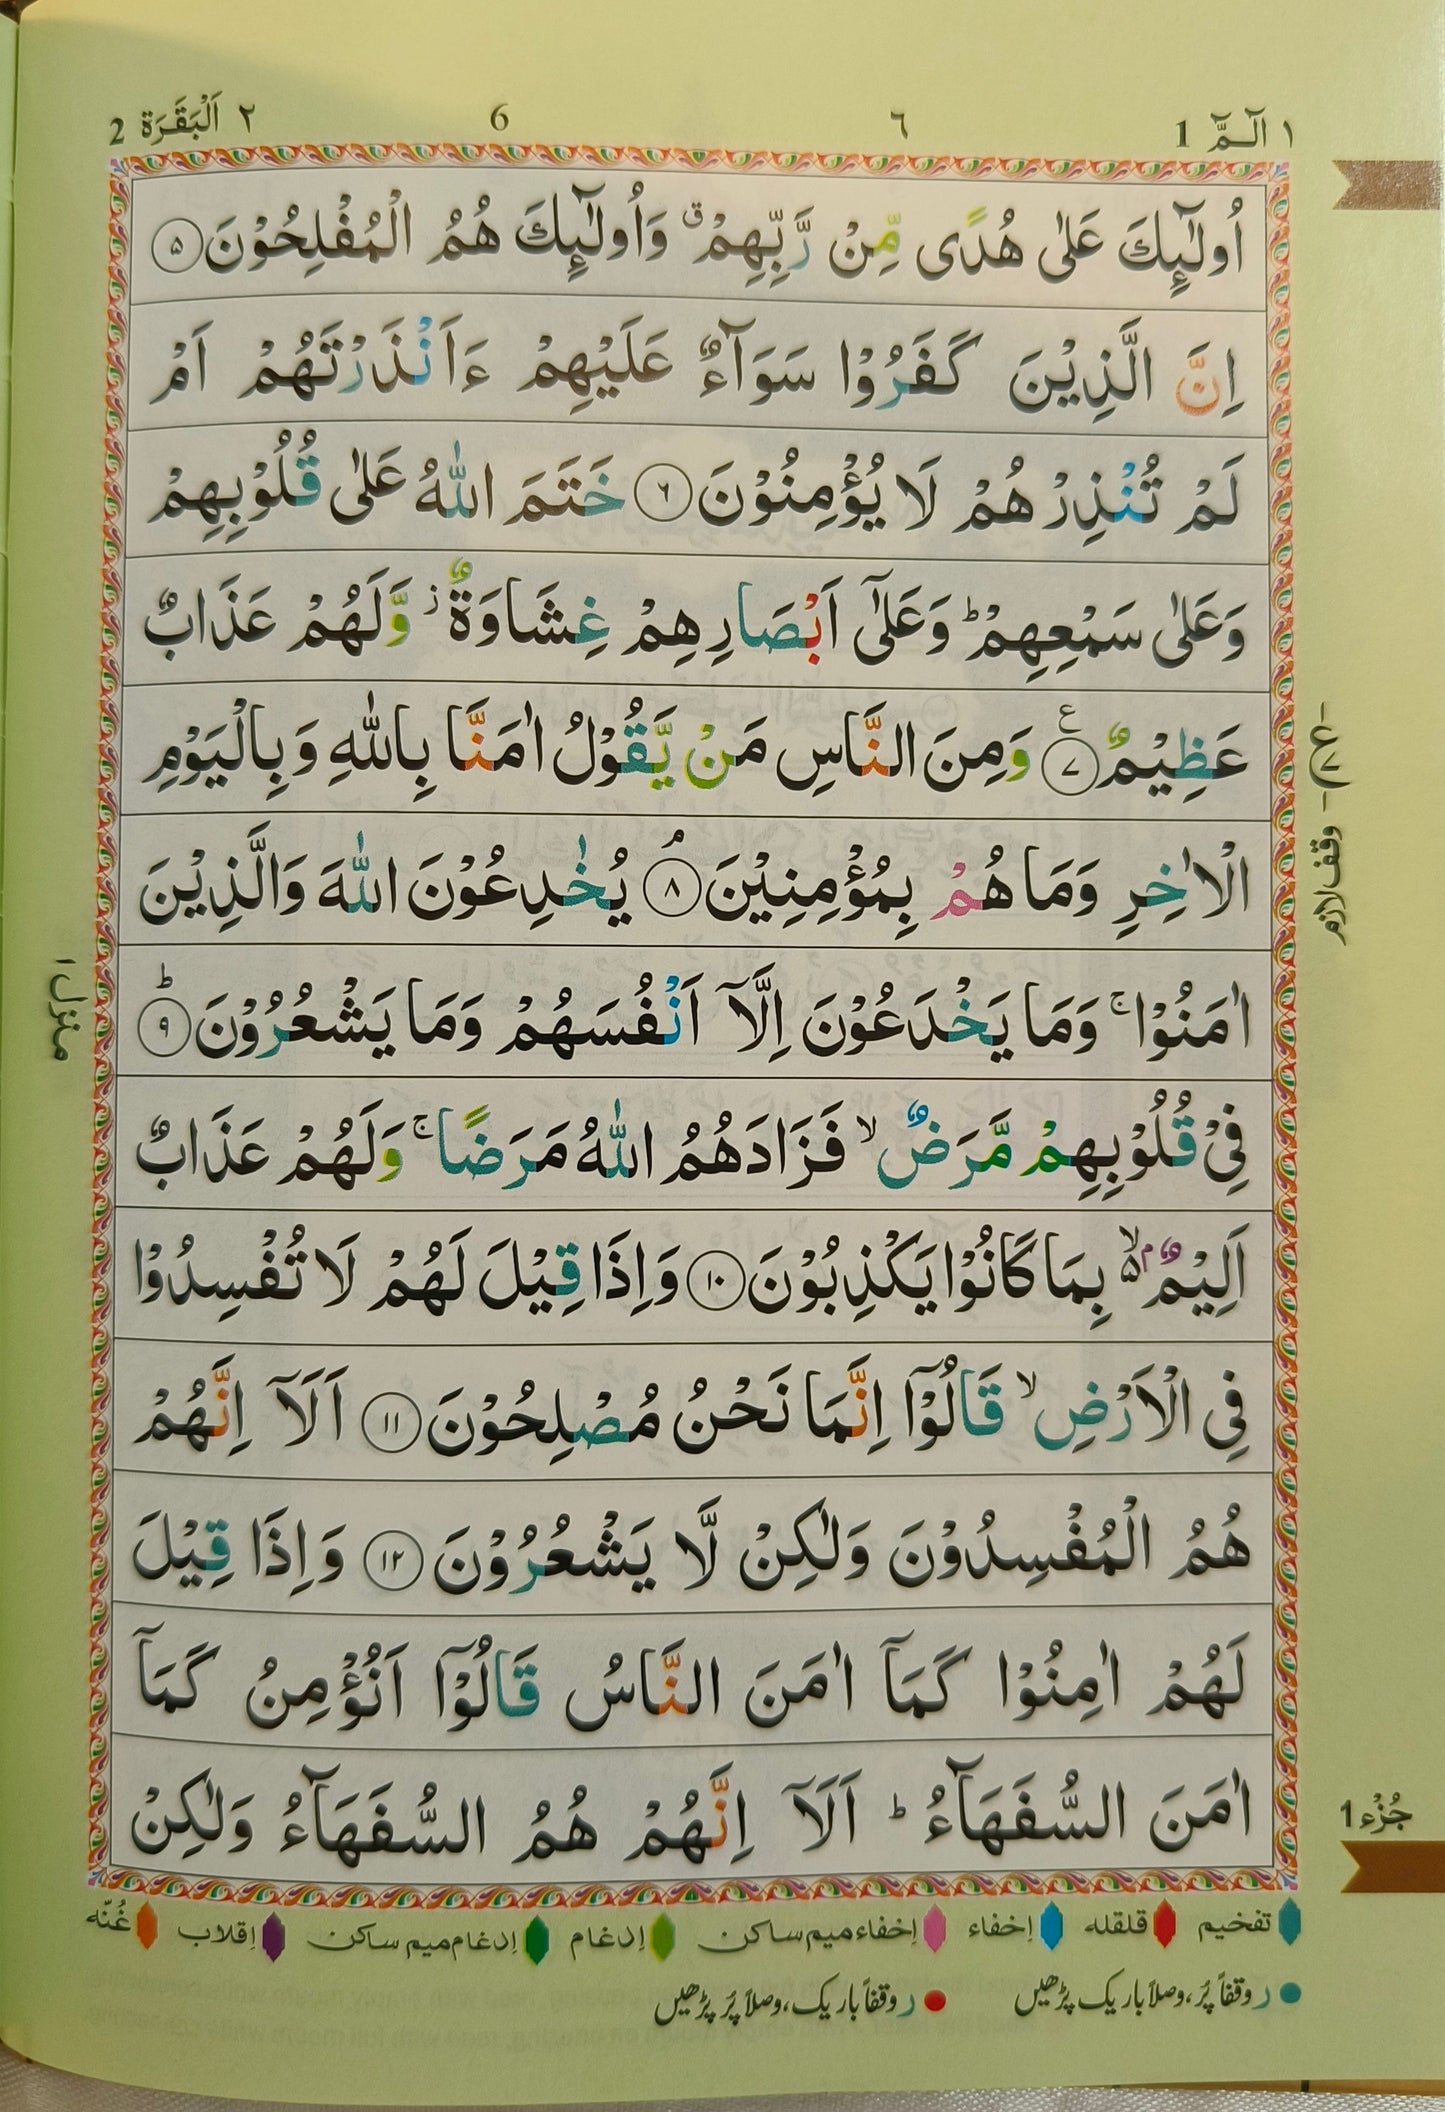 ١ الٓمّٓ 1 ٦ 6 ٢ اَلْبَقَرَة 2
اُولٰٓئِكَ عَلٰى هُدًى مِّنْ رَّبِّهِمْ ۗ وَاُولٰٓئِكَ هُمُ الْمُفْلِحُوْنَ ۝۵
اِنَّ الَّذِيْنَ كَفَرُوْا سَوَآءٌ عَلَيْهِمْ ءَاَنْذَرْتَهُمْ اَمْ
لَمْ تُنْذِرْهُمْ لَا يُؤْمِنُوْنَ ۝۶ خَتَمَ اللّٰهُ عَلٰى قُلُوْبِهِمْ
وَعَلٰى سَمْعِهِمْ ؕ وَعَلٰٓى اَبْصَارِهِمْ غِشَاوَةٌ ز وَّلَهُمْ عَذَابٌ
عَظِيْمٌ ۝۷ ع وَمِنَ النَّاسِ مَنْ يَّقُوْلُ اٰمَنَّا بِاللّٰهِ وَبِالْيَوْمِ
الْاٰخِرِ وَمَا هُمْ بِمُؤْمِنِيْنَ ۝۸ۘ يُخٰدِعُوْنَ اللّٰهَ وَالَّذِيْنَ
اٰمَنُوْا ۚ وَمَا يَخْدَعُوْنَ اِلَّآ اَنْفُسَهُمْ وَمَا يَشْعُرُوْنَ ۝۹ؕ
فِيْ قُلُوْبِهِمْ مَّرَضٌ ۙ فَزَادَهُمُ اللّٰهُ مَرَضًا ۚ وَلَهُمْ عَذَابٌ
اَلِيْمٌۢ ۵ۙ بِمَا كَانُوْا يَكْذِبُوْنَ ۝۱۰ وَاِذَا قِيْلَ لَهُمْ لَا تُفْسِدُوْا
فِي الْاَرْضِ ۙ قَالُوْٓا اِنَّمَا نَحْنُ مُصْلِحُوْنَ ۝۱۱ اَلَآ اِنَّهُمْ
هُمُ الْمُفْسِدُوْنَ وَلٰكِنْ لَّا يَشْعُرُوْنَ ۝۱۲ وَاِذَا قِيْلَ
لَهُمْ اٰمِنُوْا كَمَآ اٰمَنَ النَّاسُ قَالُوْٓا اَنُؤْمِنُ كَمَآ
اٰمَنَ السُّفَهَآءُ ؕ اَلَآ اِنَّهُمْ هُمُ السُّفَهَآءُ وَلٰكِنْ
ع ۷ وقف لازم
منزل ١
جُزْء 1
تفخيم قلقله إخفاء إخفاء ميم ساكن إدغام إدغام ميم ساكن إقلاب غُنّه
ر وقفاً پُر، وصلاً باریک پڑھیں ر وقفاً باریک، وصلاً پُر پڑھیں